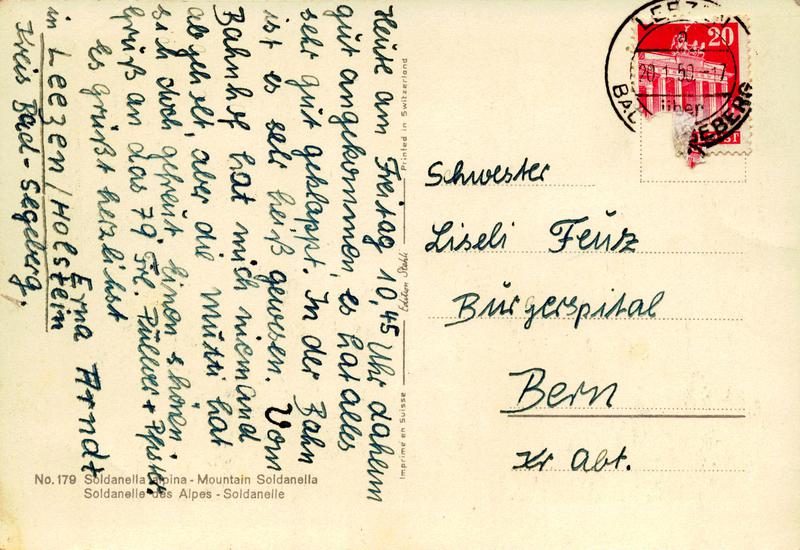 Heute am Freitag 10,45 Uhr daheim
gut angekommen, es hat alles
sehr gut geklappt. In der Bahn
ist es sehr heiß gewesen. Vom
Bahnhof hat mich niemand
abgeholt, aber die Mutti hat
sich doch gefreut. Einen schönen
Gruß an das 79, Frl.
es grüßt herzlichst
Erna Arndt
in Leezen/Holstein
Kreis Bad-Segeberg.
Edition Stehli
Printed in Switzerland
Imprimé en Suisse
No. 179 Soldanella alpina - Mountain Soldanella
Soldanelle des Alpes - Soldanelle
LEEZEN
a
20
über
BAD SEGEBERG
Schwester
Liseli Feuz
Bürgerspital
Bern
Kr Abt.